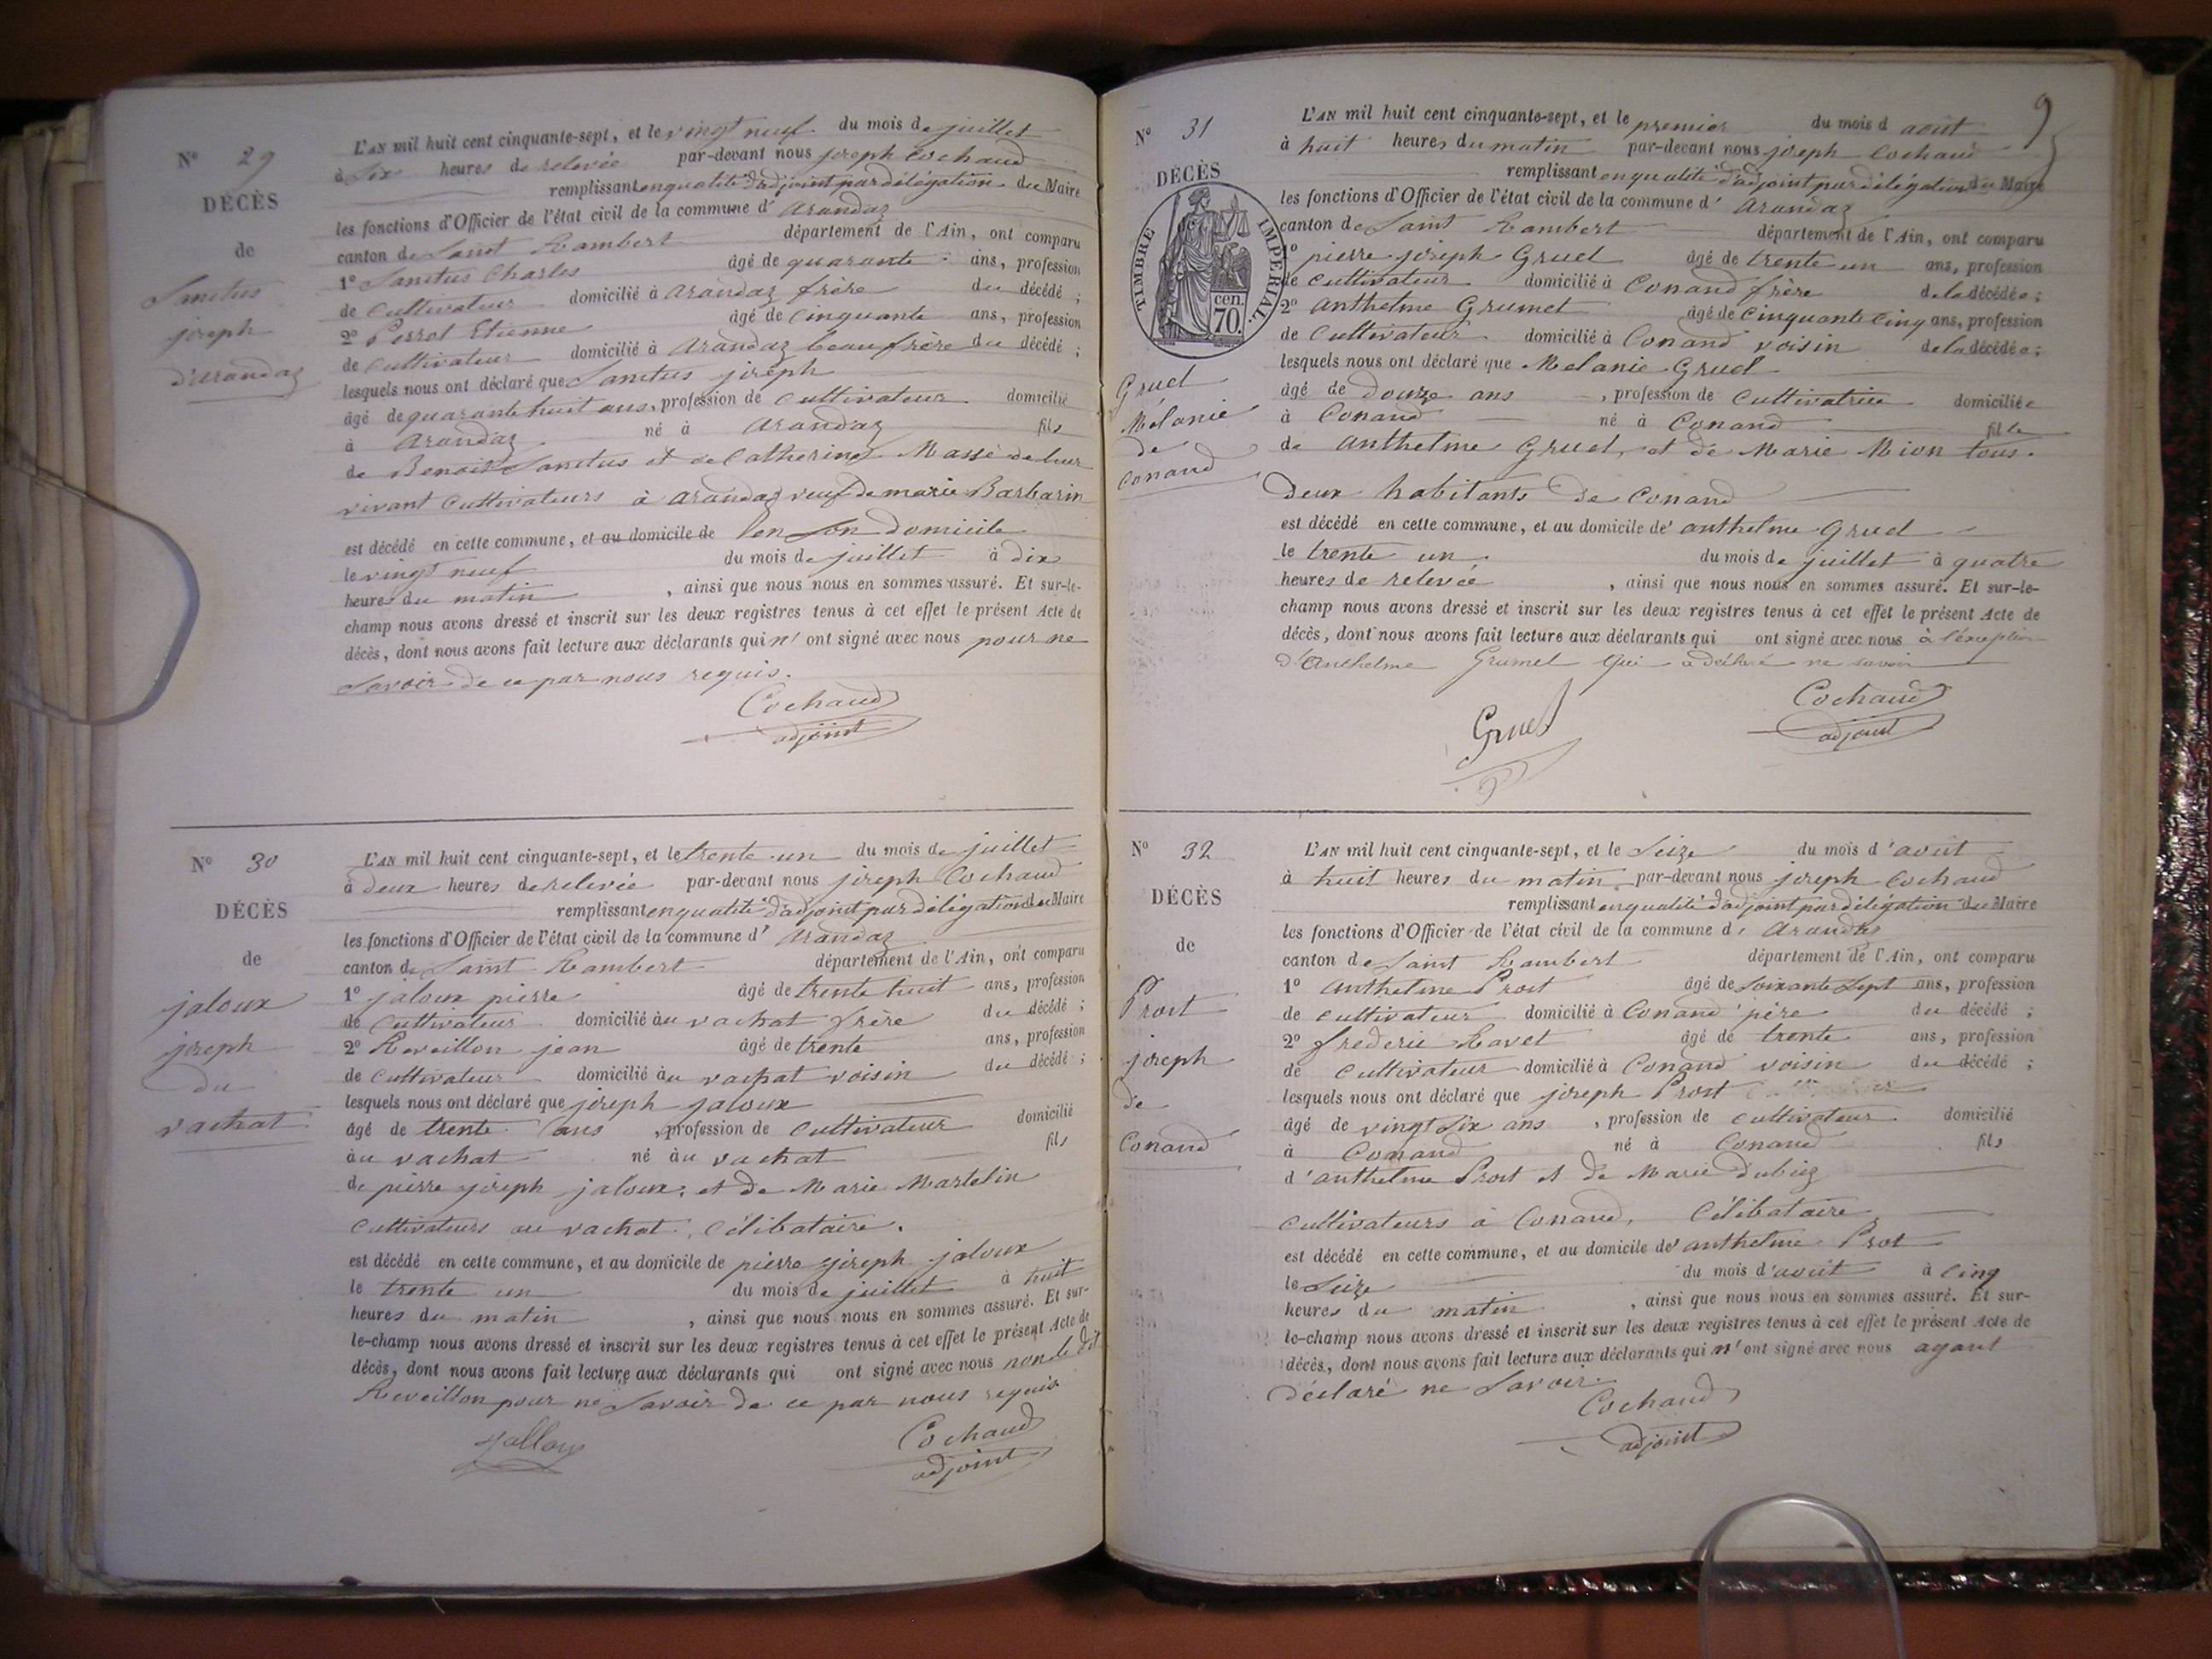 N° 29
DÉCÈS
de
Sanctus
joseph
d'arandaz
L'AN mil huit cent cinquante-sept, et le vingt neuf du mois de juillet
à Six heures de relevée par-devant nous joseph Cochaud
remplissant en qualité d'adjoint par délégation du Maire
les fonctions d'Officier de l'état civil de la commune d' arandaz
canton de Saint Rambert département de l'Ain, ont comparu
1° Sanctus Charles âgé de quarante ans, profession
de Cultivateur domicilié à arandaz frère du décédé ;
2° Perrot Etienne âgé de Cinquante ans, profession
de Cultivateur domicilié à arandaz beaufrère du décédé ;
lesquels nous ont déclaré que Sanctus joseph
âgé de quarante huit ans, profession de Cultivateur domicilié
à arandaz né à arandaz fils
de Benoit Sanctus et de Catherine Massé de leur
vivant Cultivateurs à arandaz veuf de marie Barbarin
est décédé en cette commune, et au domicile de en Son domicile
le vingt neuf du mois de juillet à dix
heures du matin , ainsi que nous nous en sommes assuré. Et sur-le-
champ nous avons dressé et inscrit sur les deux registres tenus à cet effet le présent Acte de
décès, dont nous avons fait lecture aux déclarants qui n' ont signé avec nous pour ne
Savoir de ce par nous requis.
Cochaud
adjoint
N° 30
DÉCÈS
de
jaloux
joseph
du
vachat
L'AN mil huit cent cinquante-sept, et le trente un du mois de juillet
à deux heures de relevée par-devant nous joseph Cochaud
remplissant en qualité d'adjoint par délégation du Maire
les fonctions d'Officier de l'état civil de la commune d' arandaz
canton de Saint Rambert département de l'Ain, ont comparu
1° jaloux pierre âgé de trente huit ans, profession
de Cultivateur domicilié au vachat frère du décédé ;
2° Reveillon jean âgé de trente ans, profession
de Cultivateur domicilié au vachat voisin du décédé ;
lesquels nous ont déclaré que joseph jaloux
âgé de trente ans , profession de Cultivateur domicilié
au vachat né au vachat fils
de pierre joseph jaloux, et de Marie Martelin
Cultivateurs au vachat, Célibataire.
est décédé en cette commune, et au domicile de pierre joseph jaloux
le trente un du mois de juillet à huit
heures du matin , ainsi que nous nous en sommes assuré. Et sur-
le-champ nous avons dressé et inscrit sur les deux registres tenus à cet effet le présent Acte de
décès, dont nous avons fait lecture aux déclarants qui ont signé avec nous non le dit
Reveillon pour ne Savoir de ce par nous requis
Jalloux
Cochaud
adjoint
9
N° 31
DÉCÈS
TIMBRE IMPÉRIAL
cen.
70.
Gruel
Mélanie
de
Conand
L'AN mil huit cent cinquante-sept, et le premier du mois d aout
à huit heures du matin par-devant nous joseph Cochaud
remplissant en qualité d'adjoint par délégation du Maire
les fonctions d'Officier de l'état civil de la commune d' arandaz
canton de Saint Rambert département de l'Ain, ont comparu
1° pierre joseph Gruel âgé de trente un ans, profession
de Cultivateur domicilié à Conand frère de la décédée ;
2° anthelme Grumet âgé de Cinquante Cinq ans, profession
de Cultivateur domicilié à Conand voisin de la décédée ;
lesquels nous ont déclaré que Melanie Gruel
âgé de douze ans , profession de Cultivatrice domiciliée
à Conand né à Conand fille
de anthelme Gruel, et de Marie Mion tous
Deux habitants de Conand
est décédé en cette commune, et au domicile de' anthelme Gruel
le trente un du mois de juillet à quatre
heures de relevée , ainsi que nous nous en sommes assuré. Et sur-le-
champ nous avons dressé et inscrit sur les deux registres tenus à cet effet le présent Acte de
décès, dont nous avons fait lecture aux déclarants qui ont signé avec nous à l'éxception
d'Anthelme Grumet qui a déclaré ne savoir
Gruel
Cochaud
adjoint
N° 32
DÉCÈS
de
Prost
joseph
de
Conand
L'AN mil huit cent cinquante-sept, et le Seize du mois d'aout
à huit heures du matin par-devant nous joseph Cochaud
remplissant en qualité d'adjoint par délégation du Maire
les fonctions d'Officier de l'état civil de la commune d' arandas
canton de Saint Rambert département de l'Ain, ont comparu
1° anthelme Prost âgé de Soixante Sept ans, profession
de Cultivateur domicilié à Conand père du décédé ;
2° frederic Ravet âgé de trente ans, profession
de Cultivateur domicilié à Conand voisin du décédé ;
lesquels nous ont déclaré que joseph Prost
âgé de vingt Six ans , profession de Cultivateur domicilié
à Conand né à Conand fils
d'anthelme Prost et de Marie Dubiez
Cultivateurs à Conand, Célibataire
est décédé en cette commune, et au domicile de' anthelme Prost
le Seize du mois d'aout à Cinq
heures du matin , ainsi que nous nous en sommes assuré. Et sur-
le-champ nous avons dressé et inscrit sur les deux registres tenus à cet effet le présent Acte de
décès, dont nous avons fait lecture aux déclarants qui n' ont signé avec nous ayant
déclaré ne Savoir.
Cochaud
adjoint